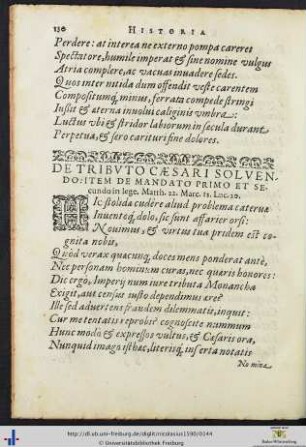 130 HISTORIA
Perdere: at interea ne externo pompa careret
Spectatore, humile imperat & sine nomine vulgus
Atria complere, ac vacuas inuadere sedes.
Quos inter nitida dum offendit veste carentem
Compositumq; minus, ferrata compede stringi
Iussit & æterna inuolui caliginis vmbra:
Luctus vbi & stridor laborum in secula durant
Perpetua, & sero carituri fine dolores.
DE TRIBVTO CÆSARI SOLVEN-
DO: ITEM DE MANDATO PRIMO ET SE-
cundo in lege. Matth. 22. Marc. 12. Luc. 20.
HIc stolida cudêre aliud problema cateruæ
Inuentoq; dolo, sic sunt affarier orsi:
Nouimus, & virtus tua pridem est co-
gnita nobis,
Quòd verax quacunq; doces mens ponderat ante,
Nec personam hominum curas, nec quæris honores:
Dic ergò, Imperij num iure tributa Monarcha
Exigit, aut census iusto dependimus ære?
Ille sed aduertens fraudem dilemmatis, inquit:
Cur me tentatis reprobi? cognoscite nummum
Hunc modò & expressos vultus, & Cæsaris ora,
Nunquid imago isthæc, literisq; inserta notatis
No mina
http://dl.ub.uni-freiburg.de/diglit/nicolasius1590/0144
© Universitätsbibliothek Freiburg